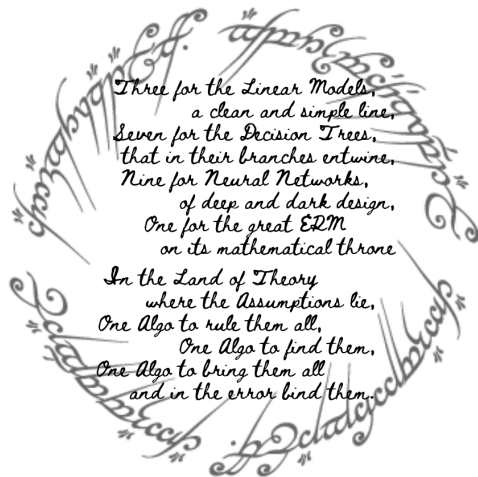 Three for the Linear Models,
a clean and simple line,
Seven for the Decision Trees,
that in their branches entwine,
Nine for Neural Networks,
of deep and dark design,
One for the great ERM
on its mathematical throne
In the Land of Theory
where the Assumptions lie,
One Algo to rule them all,
One Algo to find them,
One Algo to bring them all
and in the error bind them.